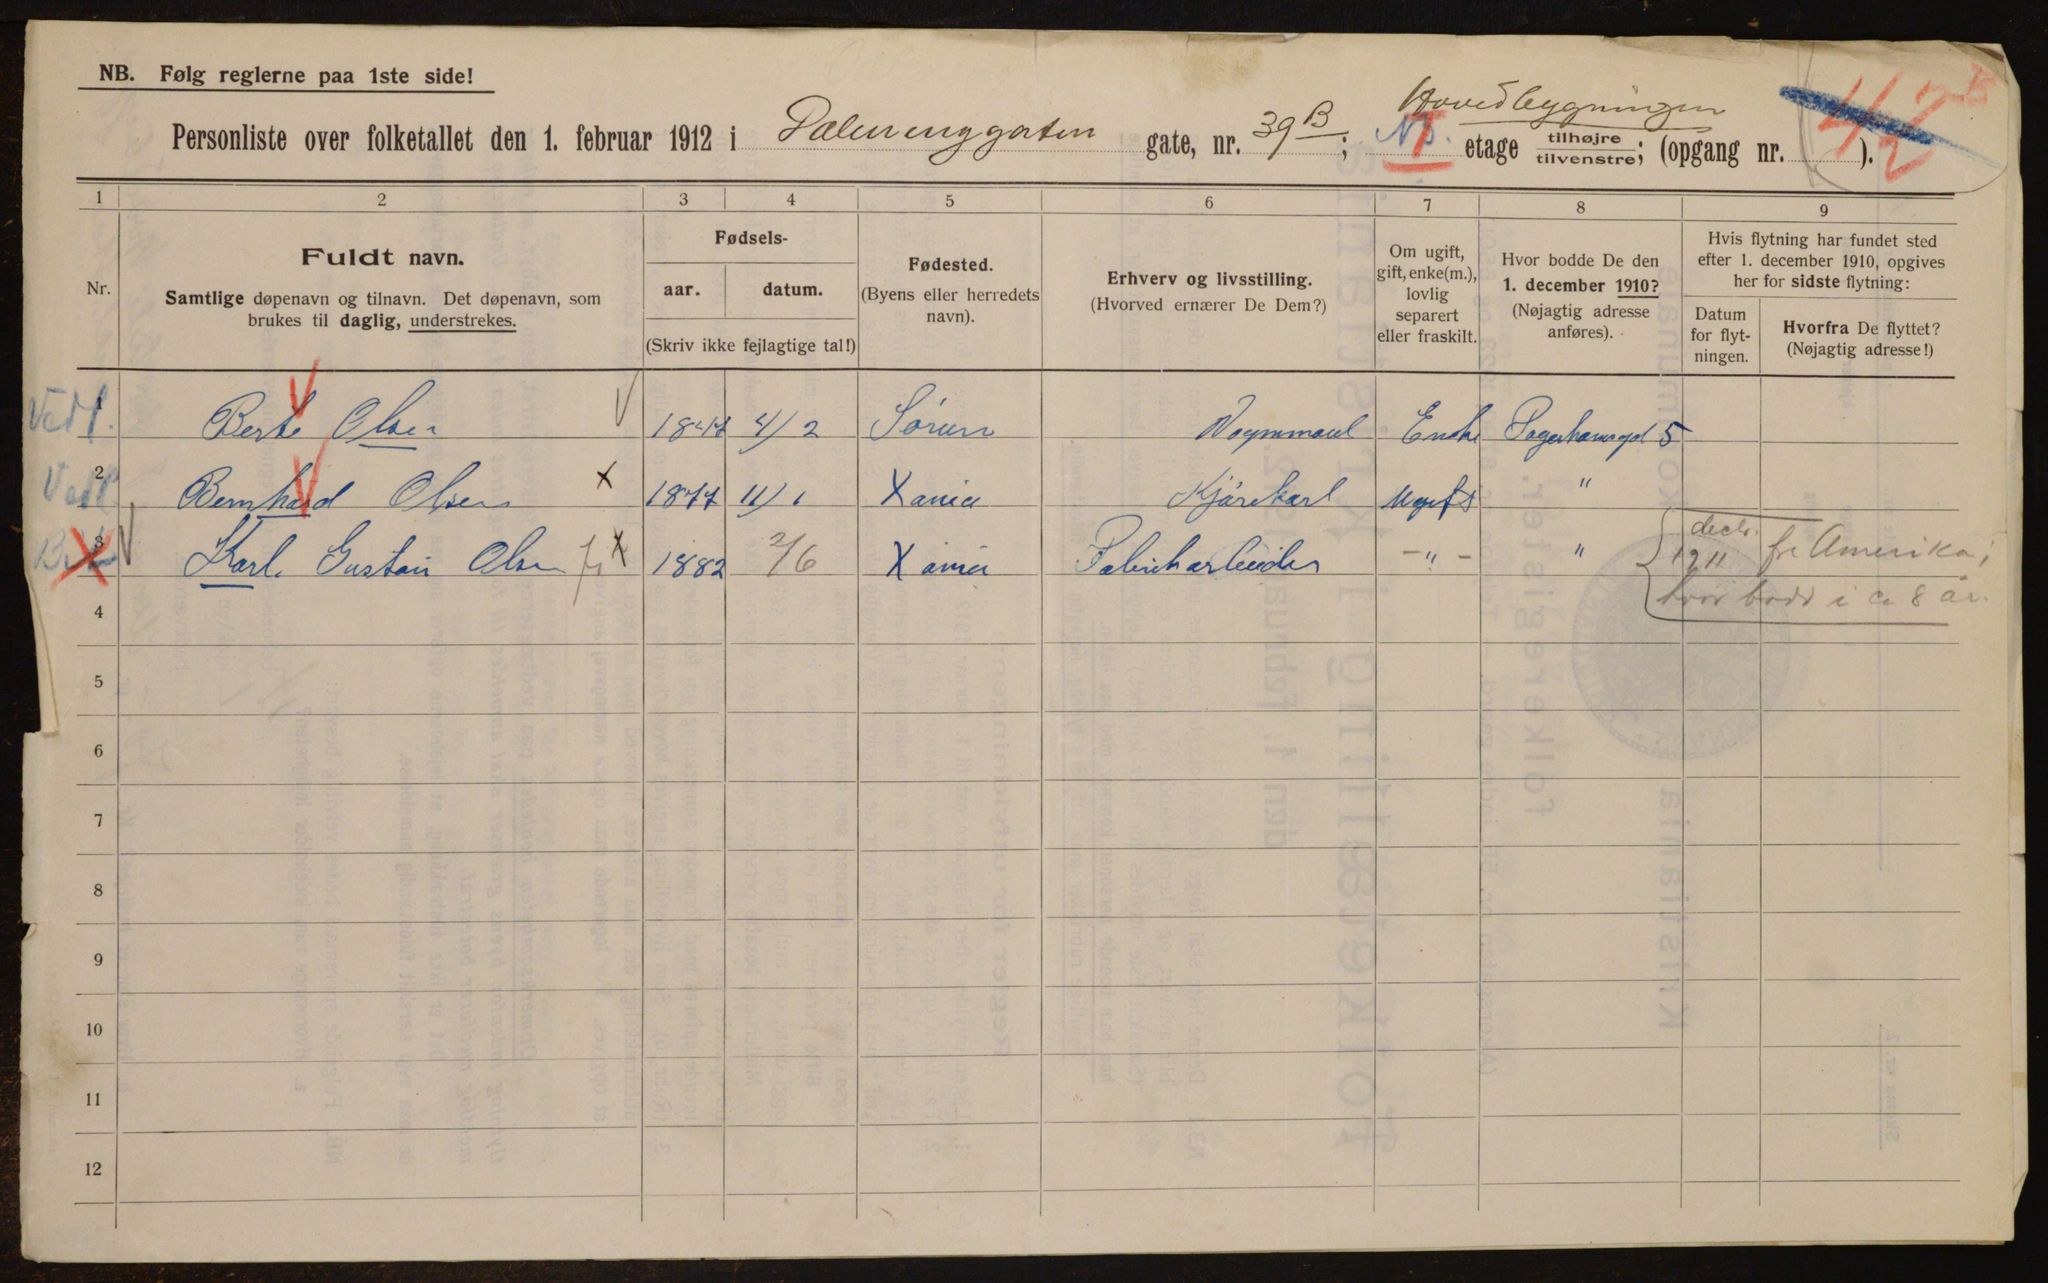 NB. Følg reglerne paa 1ste side!
Hovedbygningen
Personliste over folketallet den 1. februar 1912 i Dælenenggaten gate, nr. 39 B; I etage tilhøjre tilvenstre; (opgang nr. ). 42
1 2 3 4 5 6 7 8 9
Nr.
Fuldt navn.
Samtlige døpenavn og tilnavn. Det døpenavn, som
brukes til daglig, understrekes.
Fødsels-
aar. datum.
(Skriv ikke fejlagtige tal!)
Fødested.
(Byens eller herredets
navn).
Erhverv og livsstilling.
(Hvorved ernærer De Dem?)
Om ugift,
gift, enke(m.),
lovlig
separert
eller fraskilt.
Hvor bodde De den
1. december 1910?
(Nøjagtig adresse
anføres).
Hvis flytning har fundet sted
efter 1. december 1910, opgives
her for sidste flytning:
Datum
for flyt-
ningen.
Hvorfra De flyttet?
(Nøjagtig adresse!)
1 Berte Olsen 1847 4/2 Sørum Enke 5
2 Bernhard Olsen x 1877 11/1 Xania Kjørekarl Ugift "
3 Karl Gustav Olsen x 1882 2/6 Xania Fabrikarbeider -"- " decbr. 1911 fr Amerika;
hvor bodd i ca 8 år.
4
5
6
7
8
9
10
11
12